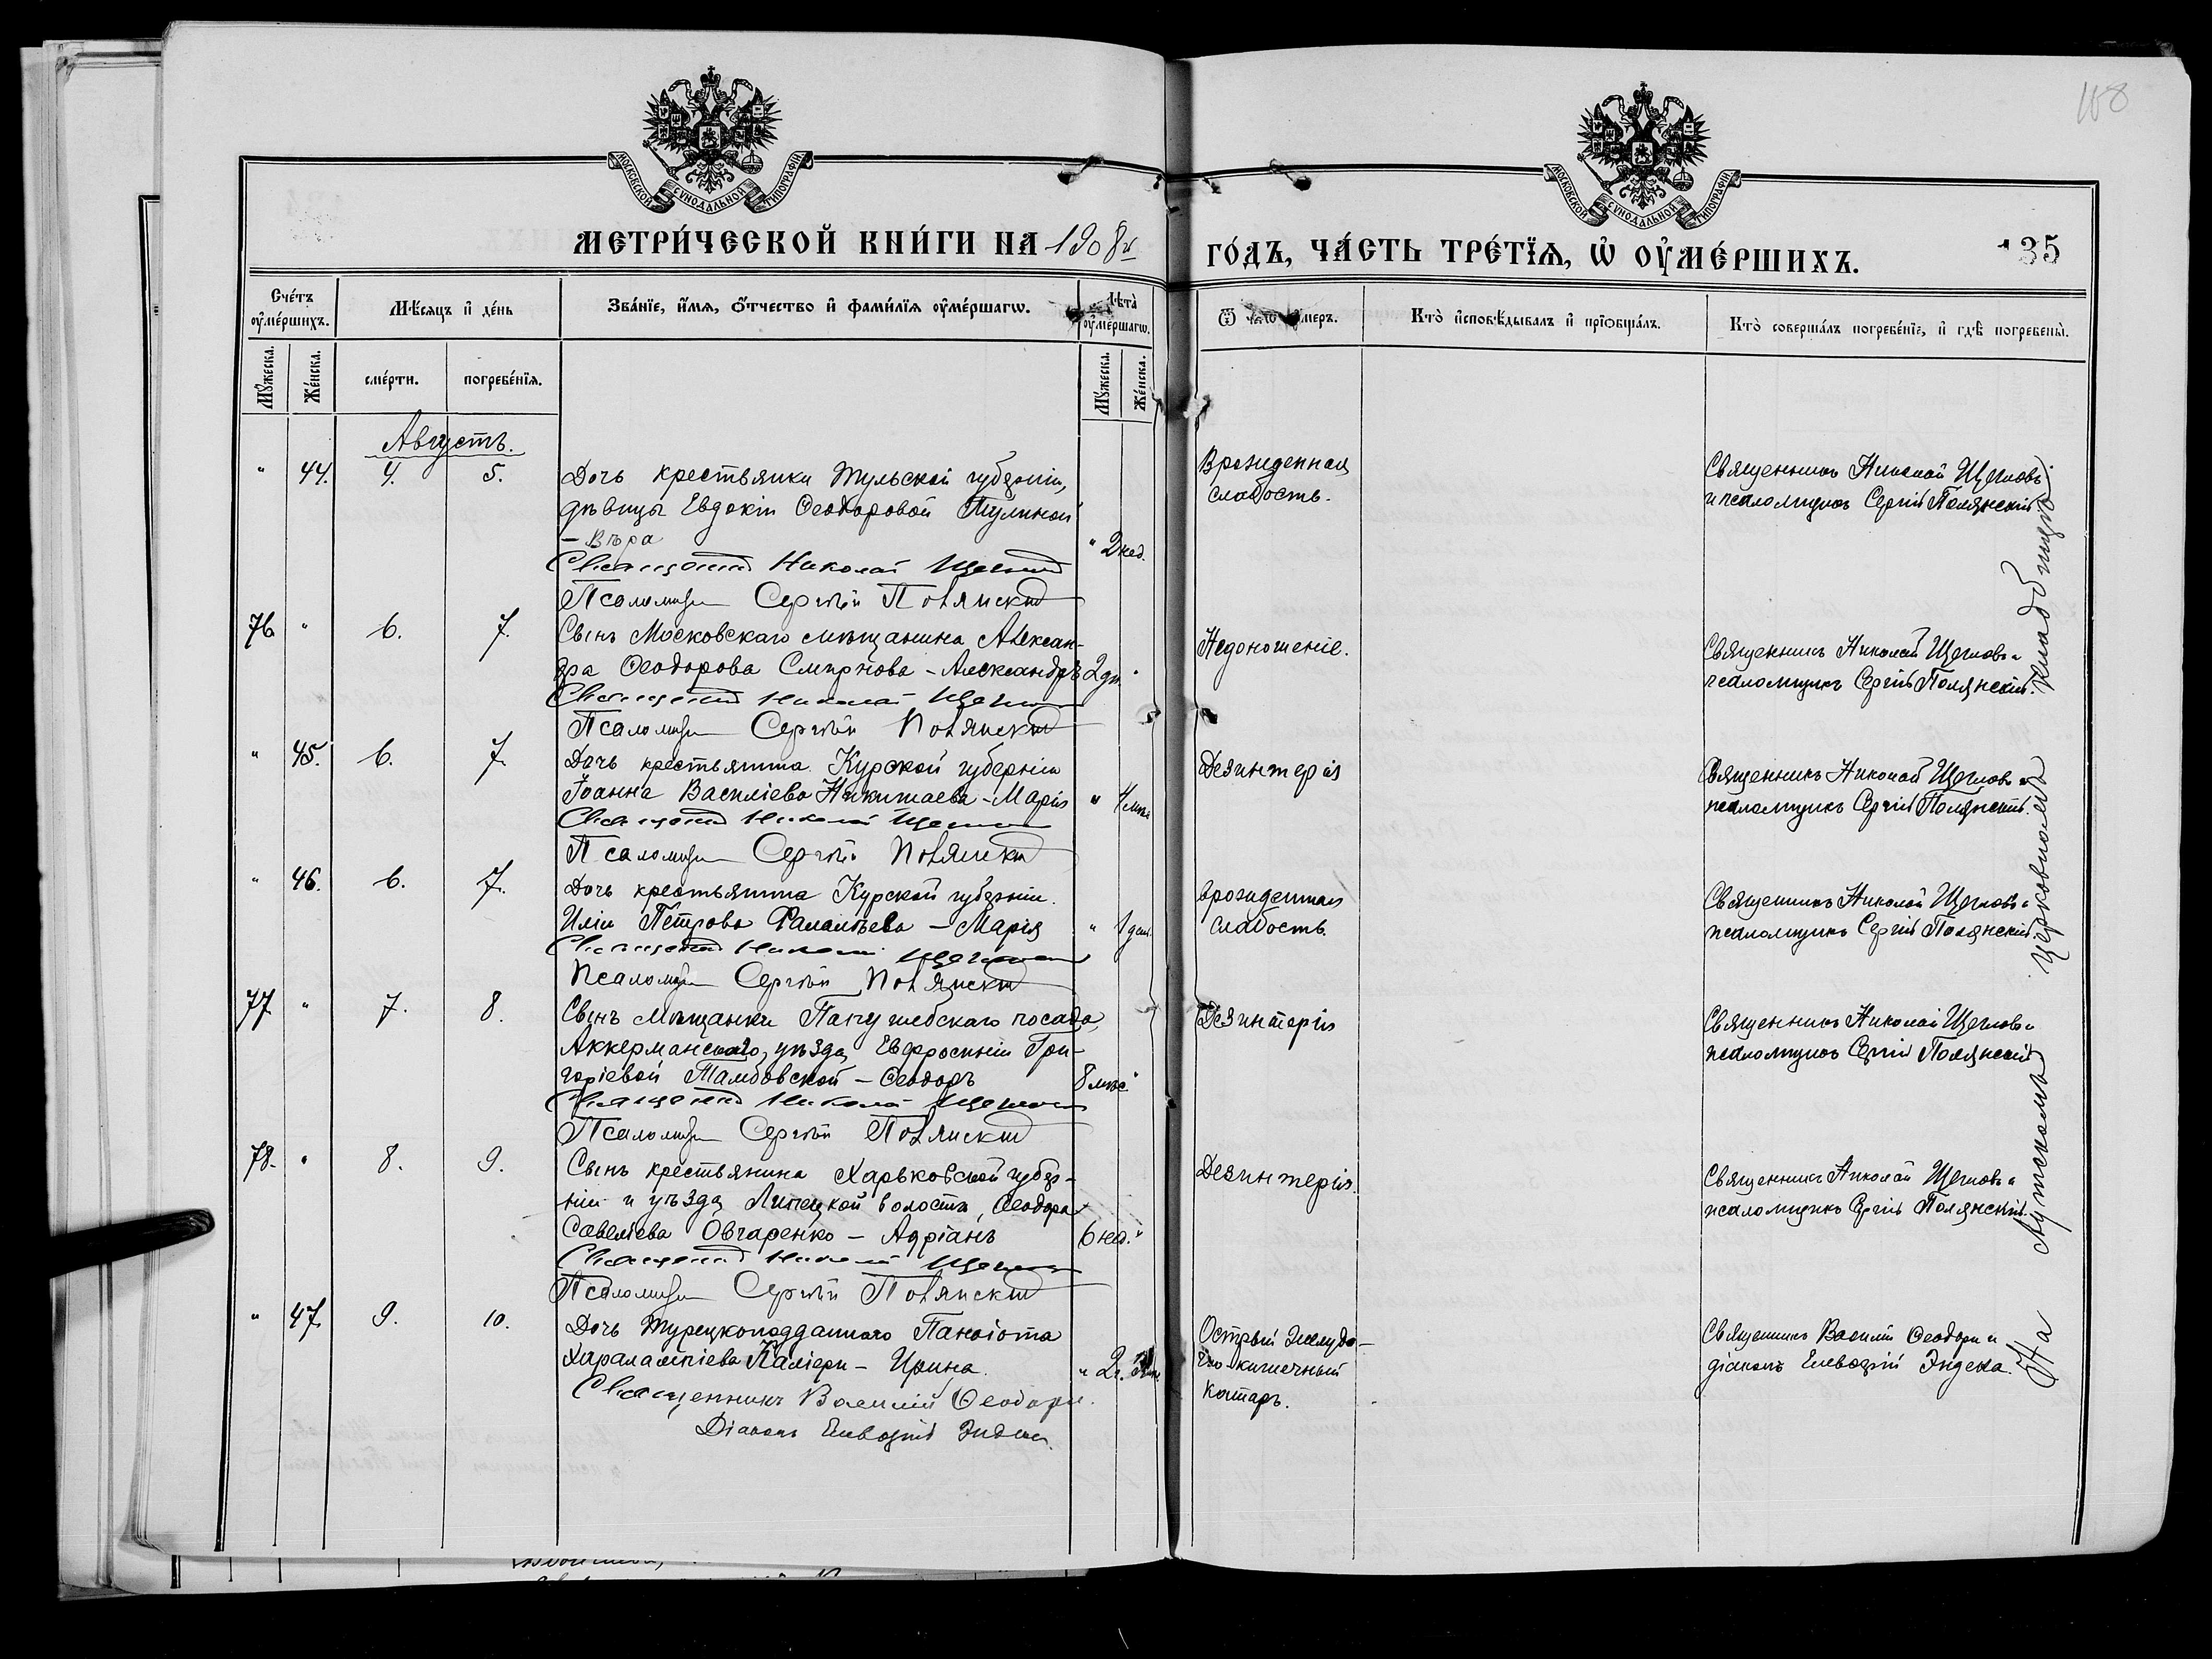 108
МОСКОВСКОЙ СѴНОДАЛЬНОЙ ТИПОГРАФІИ
МОСКОВСКОЙ СѴНОДАЛЬНОЙ ТИПОГРАФІИ
МЕТРИ́ЧЕСКОЙ КНИ́ГИ НА 1908й
ГО́ДЪ, ЧА́СТЬ ТРЕ́ТЇѦ, Ѡ҆ ОУ҆МЕ́РШИХЪ.
135
Сче́тъ оу҆ме́ршихъ.
Мѣ́сяцъ и҆ де́нь
Зва́нїе, и҆́мѧ, ѻ҆́тчество и҆ фами́лїѧ оу҆ме́ршагѡ.
Лѣта̀ оу҆ме́ршагѡ.
Ѿ чегѡ̀ оу҆́меръ.
Кто̀ и҆сповѣ́дывалъ и҆ прїѡбща́лъ.
Кто̀ соверша́лъ погребе́нїе, и҆ гдѣ̀ погребены̀.
Мꙋ́жеска.
Же́нска.
сме́рти.
погребе́нїѧ.
Мꙋ́жеска.
Же́нска.
Августъ.
" 44. 4. 5. Дочь крестьянки Тульской губерніи,
дѣвицы Евдокіи Ѳеодоровой Тулиной
— Вѣра " 2 нед.
Священникъ Николай Щегловъ
Псаломщикъ Сергѣй Полянскій
Врожденная
слабость.
Священникъ Николай Щегловъ
и псаломщикъ Сергій Полянскій
76 " 6. 7. Сынъ Московскаго мѣщанина Алексан-
дра Ѳеодорова Смирнова - Александръ 2 дн. "
Священникъ Николай Щегловъ
Псаломщикъ Сергѣй Полянскій
Недоношеніе.
Священникъ Николай Щегловъ и
псаломщикъ Сергій Полянскій.
" 45. 6. 7. Дочь крестьянина Курской губерніи
Іоанна Василіева Никитаева - Марія " 4 мѣс.
Священникъ Николай Щегловъ
Псаломщикъ Сергѣй Полянскій
Дезинтерія
Священникъ Николай Щегловъ и
псаломщикъ Сергій Полянскій.
" 46. 6. 7. Дочь крестьянина Курской губерніи.
Иліи Петрова — Марія " 1 день
Священникъ Николай Щегловъ
Псаломщикъ Сергѣй Полянскій
врожденная
слабость.
Священникъ Николай Щегловъ и
псаломщикъ Сергій Полянскій.
77 " 7. 8. Сынъ мѣщанки Папушевскаго посада,
Аккерманскаго, уѣзда, Евфросиніи Гри-
горіевой Тамбовской — Ѳеодоръ 8 мѣс. "
Священникъ Николай Щегловъ
Псаломщикъ Сергѣй Полянскій
Дезинтерія
Священникъ Николай Щегловъ и
псаломщикъ Сергій Полянскій
78. " 8. 9. Сынъ крестьянина Харьковской губер-
ніи и уѣзда, Липецкой волости, Ѳеодора
Савельева Овчаренко — Адріанъ 6 нед. "
Священникъ Николай Щегловъ
Псаломщикъ Сергѣй Полянскій
Дезинтерія.
Священникъ Николай Щегловъ и
псаломщикъ Сергій Полянскій.
" 47. 9. 10. Дочь Турецкоподданного Панаіота
Харалампіева Паліери — Ирина. " 2 г.
Священникъ Василій Ѳеодори.
Діаконъ Елевѳерій
Острый желудо-
чно-кишечный
катаръ.
Священникъ Василій Ѳеодори и
діаконъ Елевѳерій Эндека.
На Лутскомъ церковномъ кладбищѣ